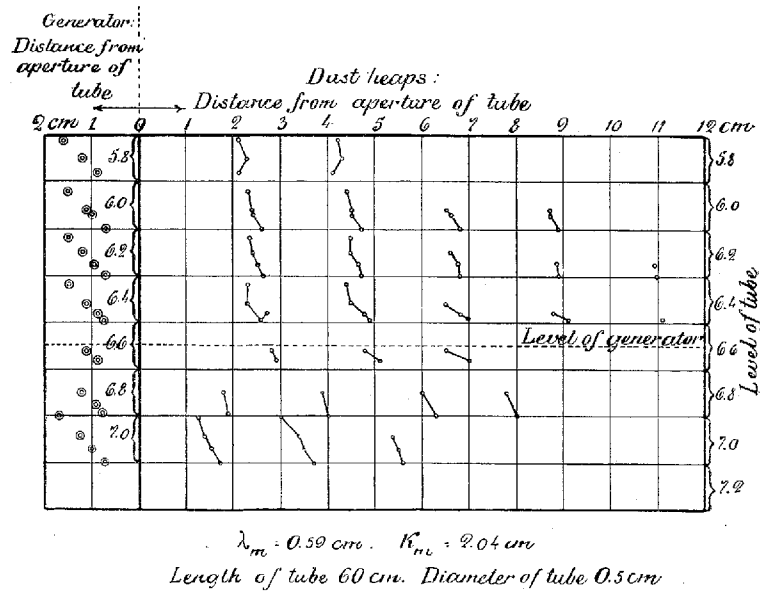 Generator:
Distance from
aperture of
tube
Dust heaps:
Distance from aperture of tube
2 cm 1 0 1 2 3 4 5 6 7 8 9 10 11 12 cm
5.8 5.8
6.0 6.0
6.2 6.2
6.4 6.4
Level of generator
6.6 6.6
6.8 6.8
7.0 7.0
7.2
Level of tube
λm = 0.59 cm. Km = 2.04 cm
Length of tube 60 cm. Diameter of tube 0.5 cm